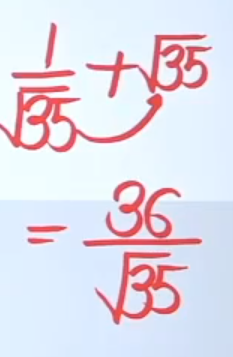 1/√35 + √35
= 36/√35